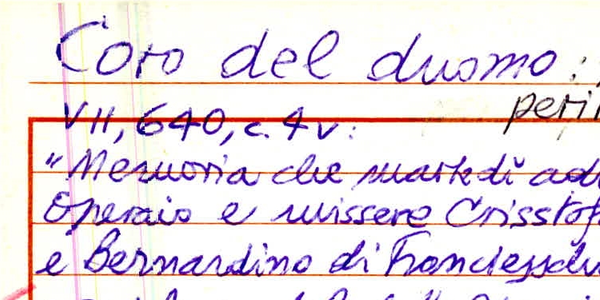 Coro del duomo:
peri
VII, 640, c. 4v:
"Memoria che martedì adì
Operaio e missere Crisstof
e Bernardino di Francies